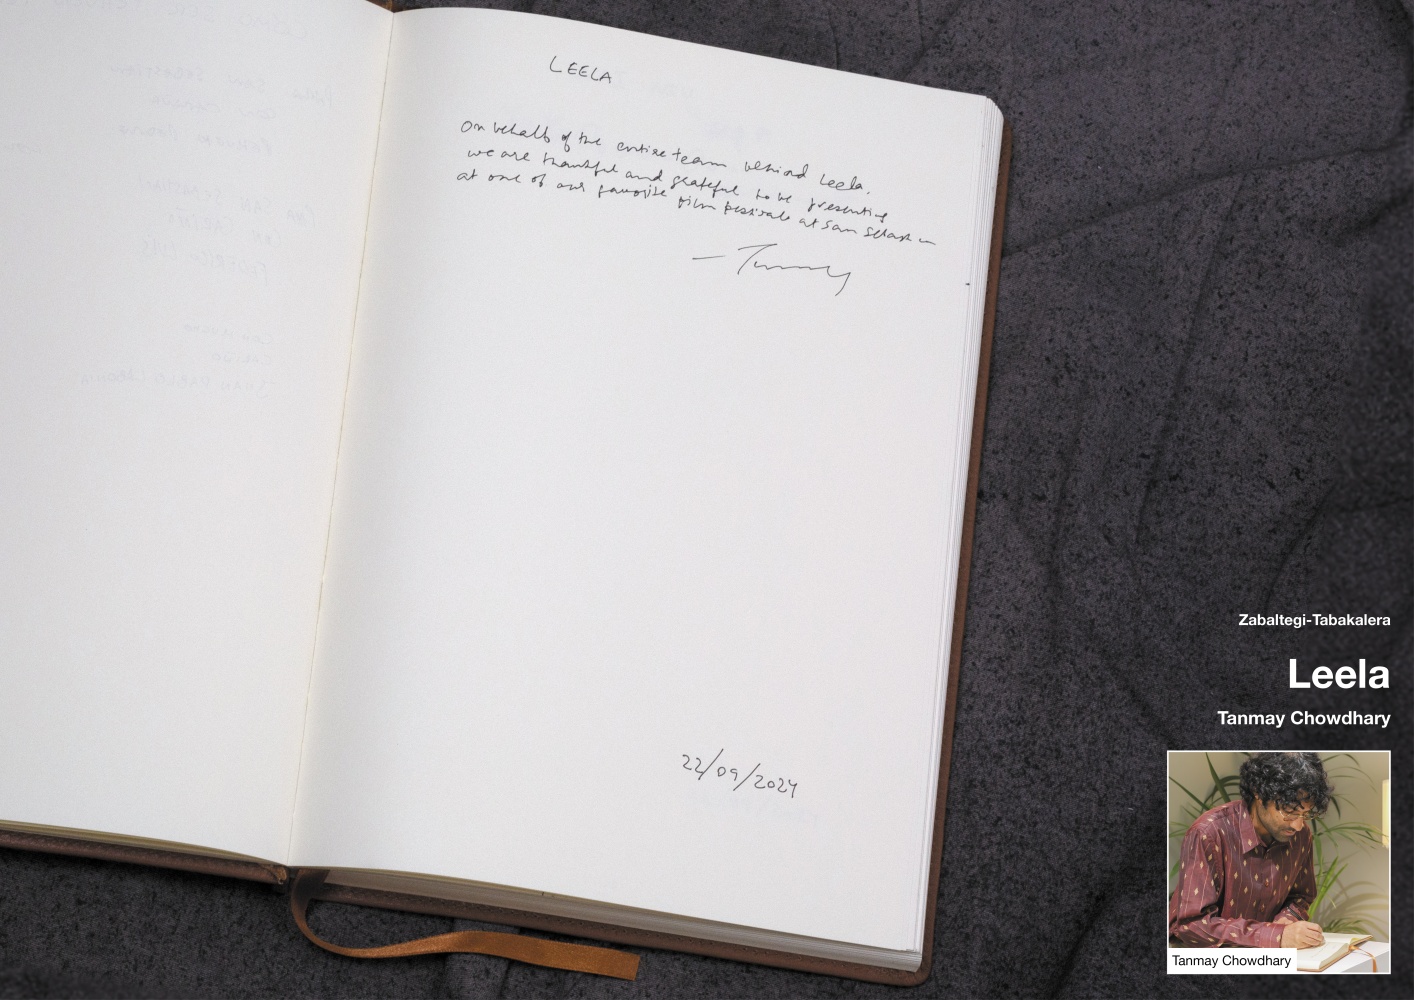 LEELA
On behalf of the entire team behind Leela.
we are thankful and grateful to be presenting
at one of our favorite film festivals at San Sebastian
— Tanmay
22/09/2024
Zabaltegi-Tabakalera
Leela
Tanmay Chowdhary
Tanmay Chowdhary